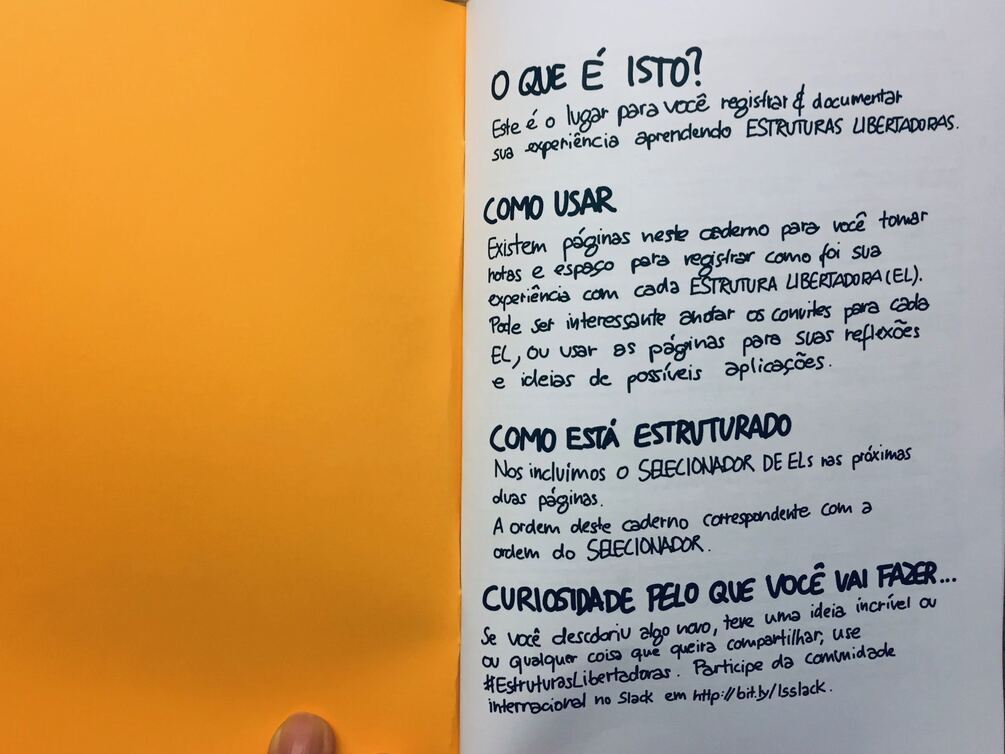 O QUE É ISTO?
Este é o lugar para você registrar & documentar
sua experiência aprendendo ESTRUTURAS LIBERTADORAS.
COMO USAR
Existem páginas neste caderno para você tomar
notas e espaço para registrar como foi sua
experiência com cada ESTRUTURA LIBERTADORA (EL).
Pode ser interessante anotar os convites para cada
EL, ou usar as páginas para suas reflexões
e ideias de possíveis aplicações.
COMO ESTÁ ESTRUTURADO
Nos incluímos o SELECIONADOR DE ELs nas próximas
duas páginas.
A ordem deste caderno correspondente com a
ordem do SELECIONADOR.
CURIOSIDADE PELO QUE VOCÊ VAI FAZER...
Se você descobriu algo novo, teve uma ideia incrível ou
ou qualquer coisa que queira compartilhar, use
#EstruturasLibertadoras. Participe da comunidade
internacional no Slack em http://bit.ly/lsslack.